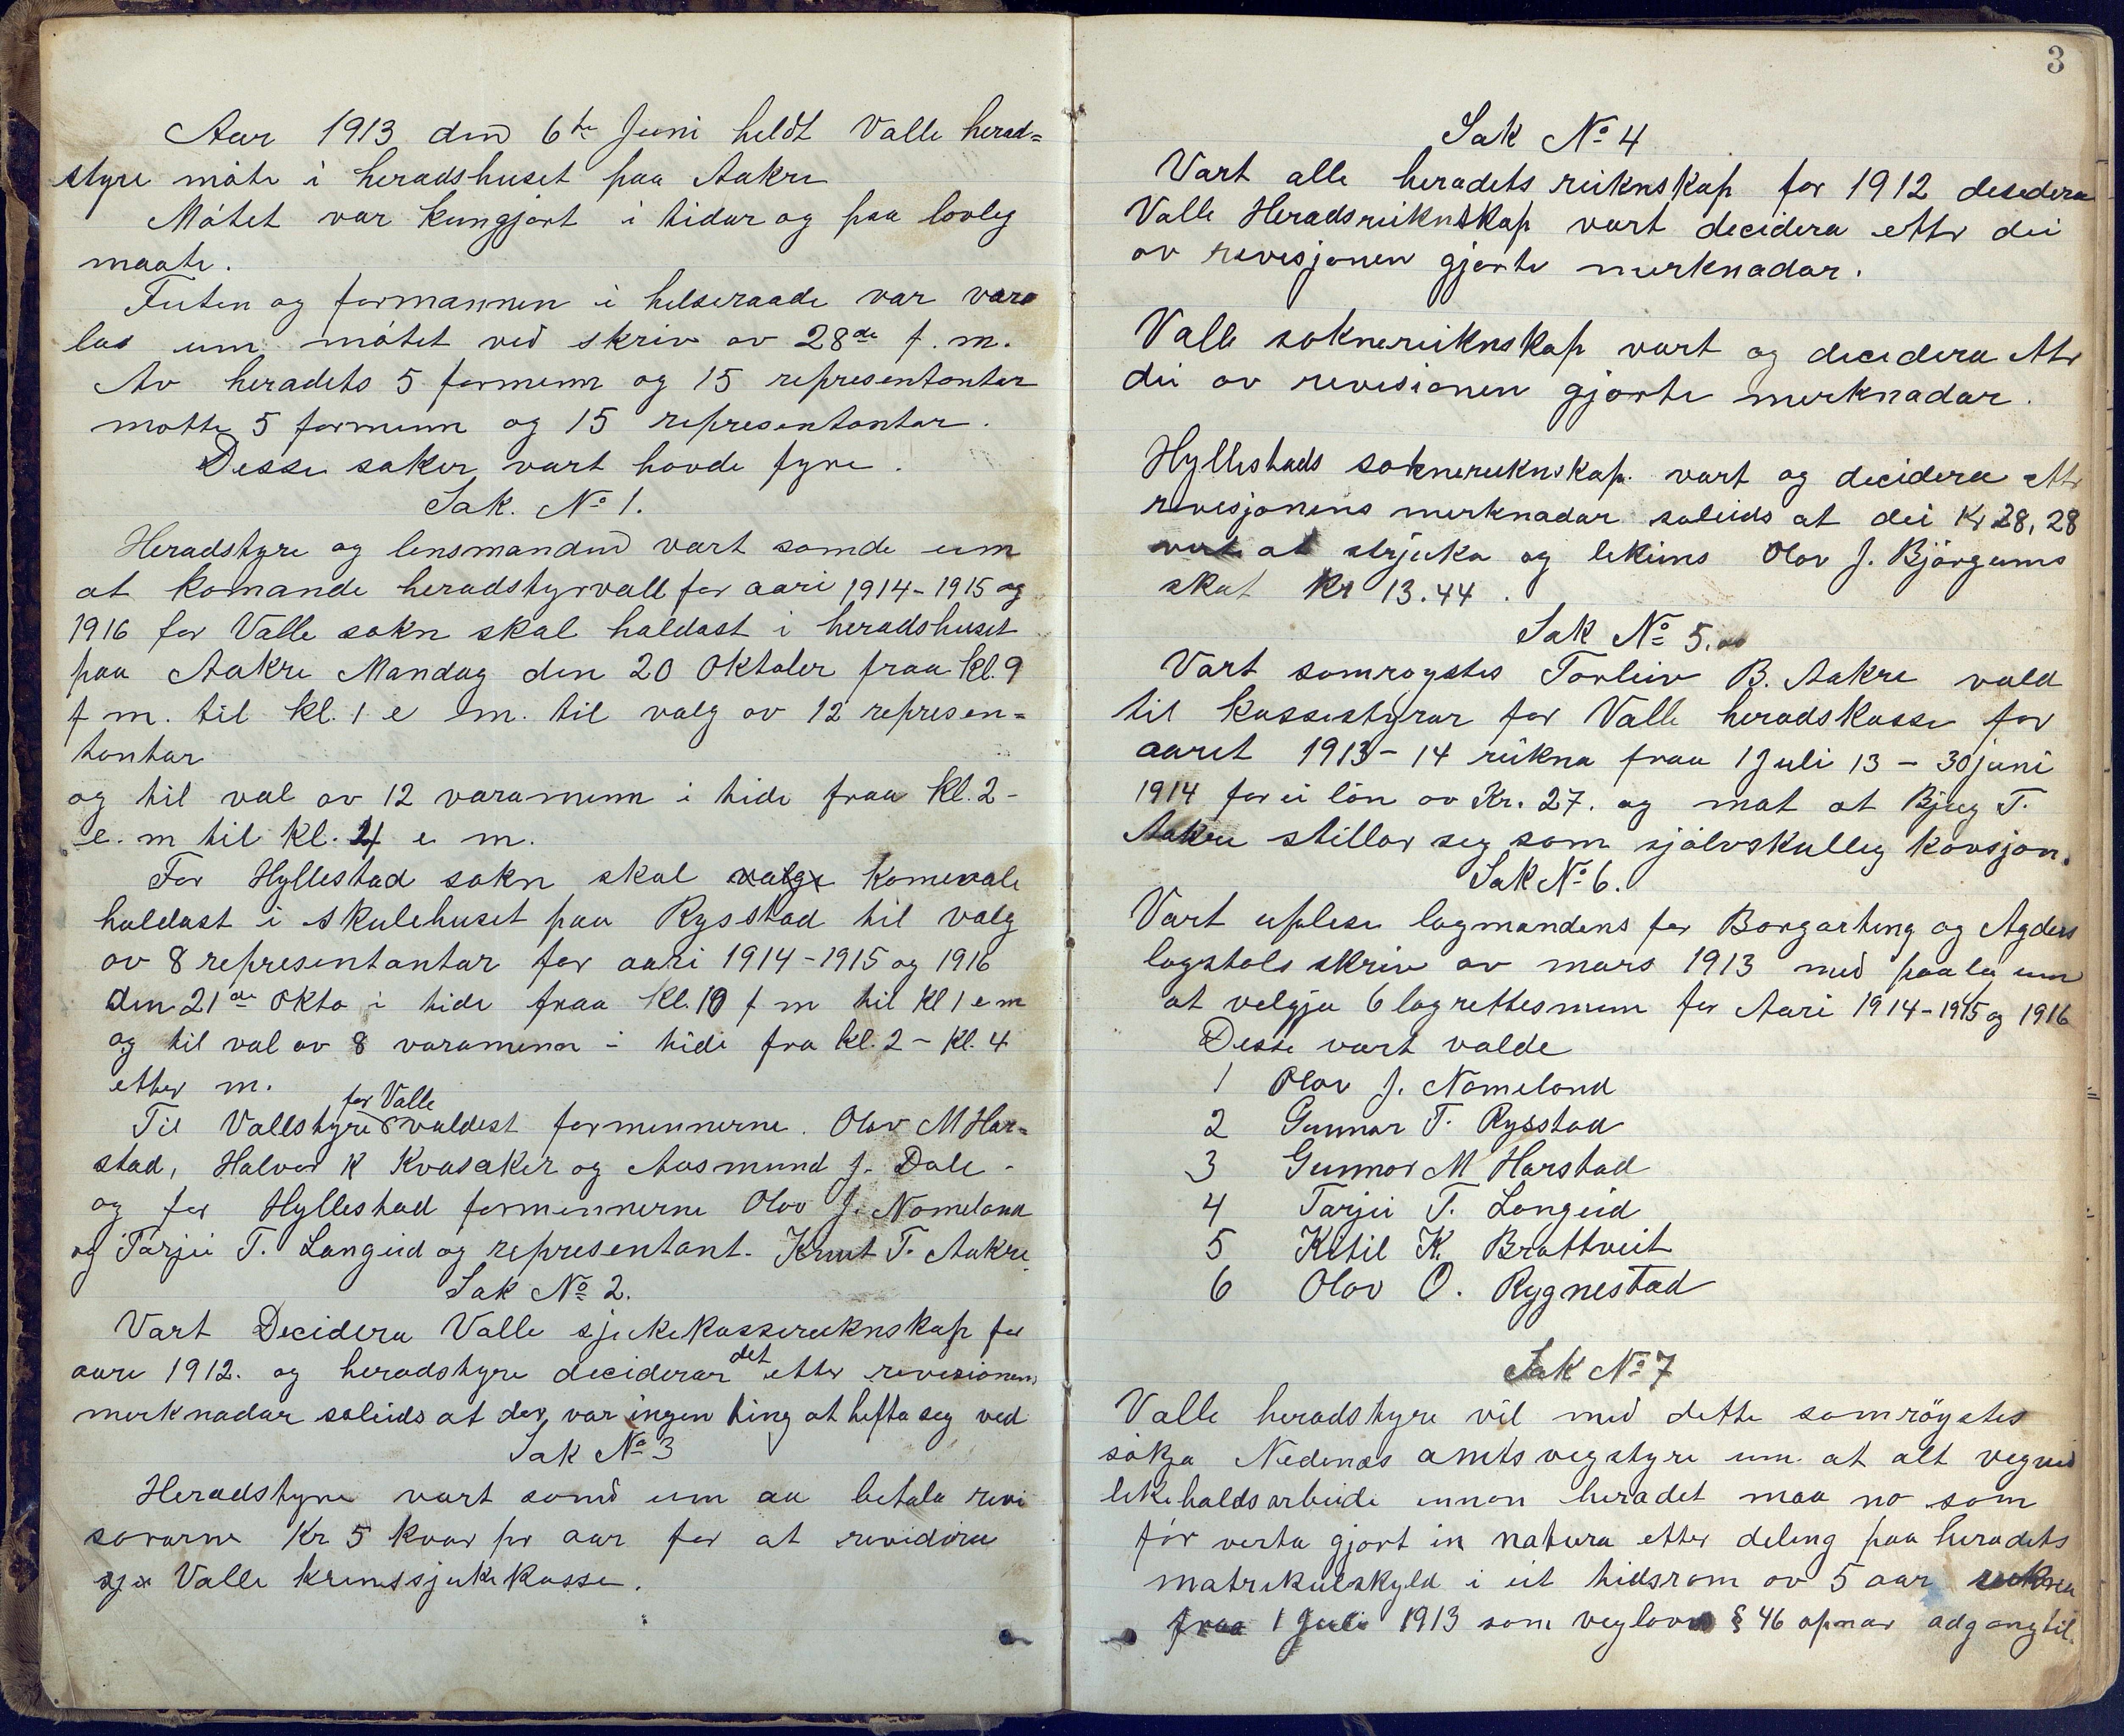 Aar 1913 den 6te Juni heldt Valle herad=
styre møte i heradshuset paa Aakre
Møtet var kungjort i tidar og paa lovleg
maate.
Futen og formannen i helseraade var vara
las um møtet ved skriv av 28de f. m.
Av heradets 5 formenn og 15 representantar
møtte 5 formenn og 15 representantar.
Desse saker vart havde fyre.
Sak. No 1.
Heradstyre og lensmanden vart samde um
at komande heradstyrvall for aari 1914-1915 og
1916 for Valle sokn skal haldast i heradshuset
paa Aakre Mandag den 20 Oktober fraa kl. 9
f m. til kl. 1 e m. til valg av 12 represen=
tantar
og til val av 12 varamenn i tide fraa kl. 2-
e. m til kl. 4 e m.
For Hyllestad sokn skal valge komevale
haldast i skulehuset paa Rysstad til valg
av 8 representantar for aari 1914-1915 og 1916
den 21de Okto i tide fraa kl. 10 f m til kl 1 e m
og til val av 8 varamenn i tide fra kl. 2 - kl. 4
etter m.
for Valle
Til Vallstyre valdest formennerne. Olav M Har=
stad, Halvor K Kvasaker og Aasmund J. Dale -
og for Hyllestad formennerne Olav J. Nomeland
og Tarjei T. Langeid og representant. Knut T. Aakre.
Sak No 2.
Vart Decidera Valle sjukekassereuknskap for
aare 1912. og heradstyre deciderar det etter revisionens
merknadar soleids at der var ingen ting at hefta seg ved
Sak No 3
Heradstyre vart samd um aa betala revi
sorarne Kr 5 kvar pr aar for at revidera
sje Valle krinssjukekasse.
3
Sak No 4
Vart alle heradets reiknskap for 1912 desedera
Valle Heradsreiknskap vart decidera etter dei
av revisjonen gjorte merknadar.
Valle soknereiknskap vart og decidera etter
dei av revisionen gjorte merknadar.
Hyllestads soknereuknskap. vart og decidera etter
revisjonens merknadar soleids at dei Kr 28,28
verte at strjuka og lekeins Olav J. Bjørgums
skat Kr 13.44.
Sak No 5.
Vart samrøystes Torleiv B. Aakre vald
til kassestyrar for Valle heradskasse for
aaret 1913-14 reikna fraa 1 Juli 13 - 30 juni
1914 for ei løn av Kr. 27. og mot at Bjug T.
Aakre stillar seg som sjølvskulleg kavsjon.
Sak No 6.
Vart uplese lagmandens for Borgarting og Agders
lagstols skriv av mars 1913 med paaleg um
at velgja 6 lagrettesmenn for Aari 1914-1915 og 1916
Desse vart valde
1 Olav J. Nomeland
2 Gunnar T. Rysstad
3 Gunnar M Harstad
4 Tarjei T. Langeid
5 Ketil K. Brottveit
6 Olav O. Rygnestad
Sak No 7
Valle heradstyre vil med dette samrøystes
søkja Nedenæs amts vegstyre um at alt vegved
likehaldsarbeide innan heradet maa no som
før verta gjort in natura etter deling paa heradets
matrikulskyld i eit tidsrom av 5 aar reikna
fraa 1 Juli 1913 som veglovens § 46 opnar adgang til.